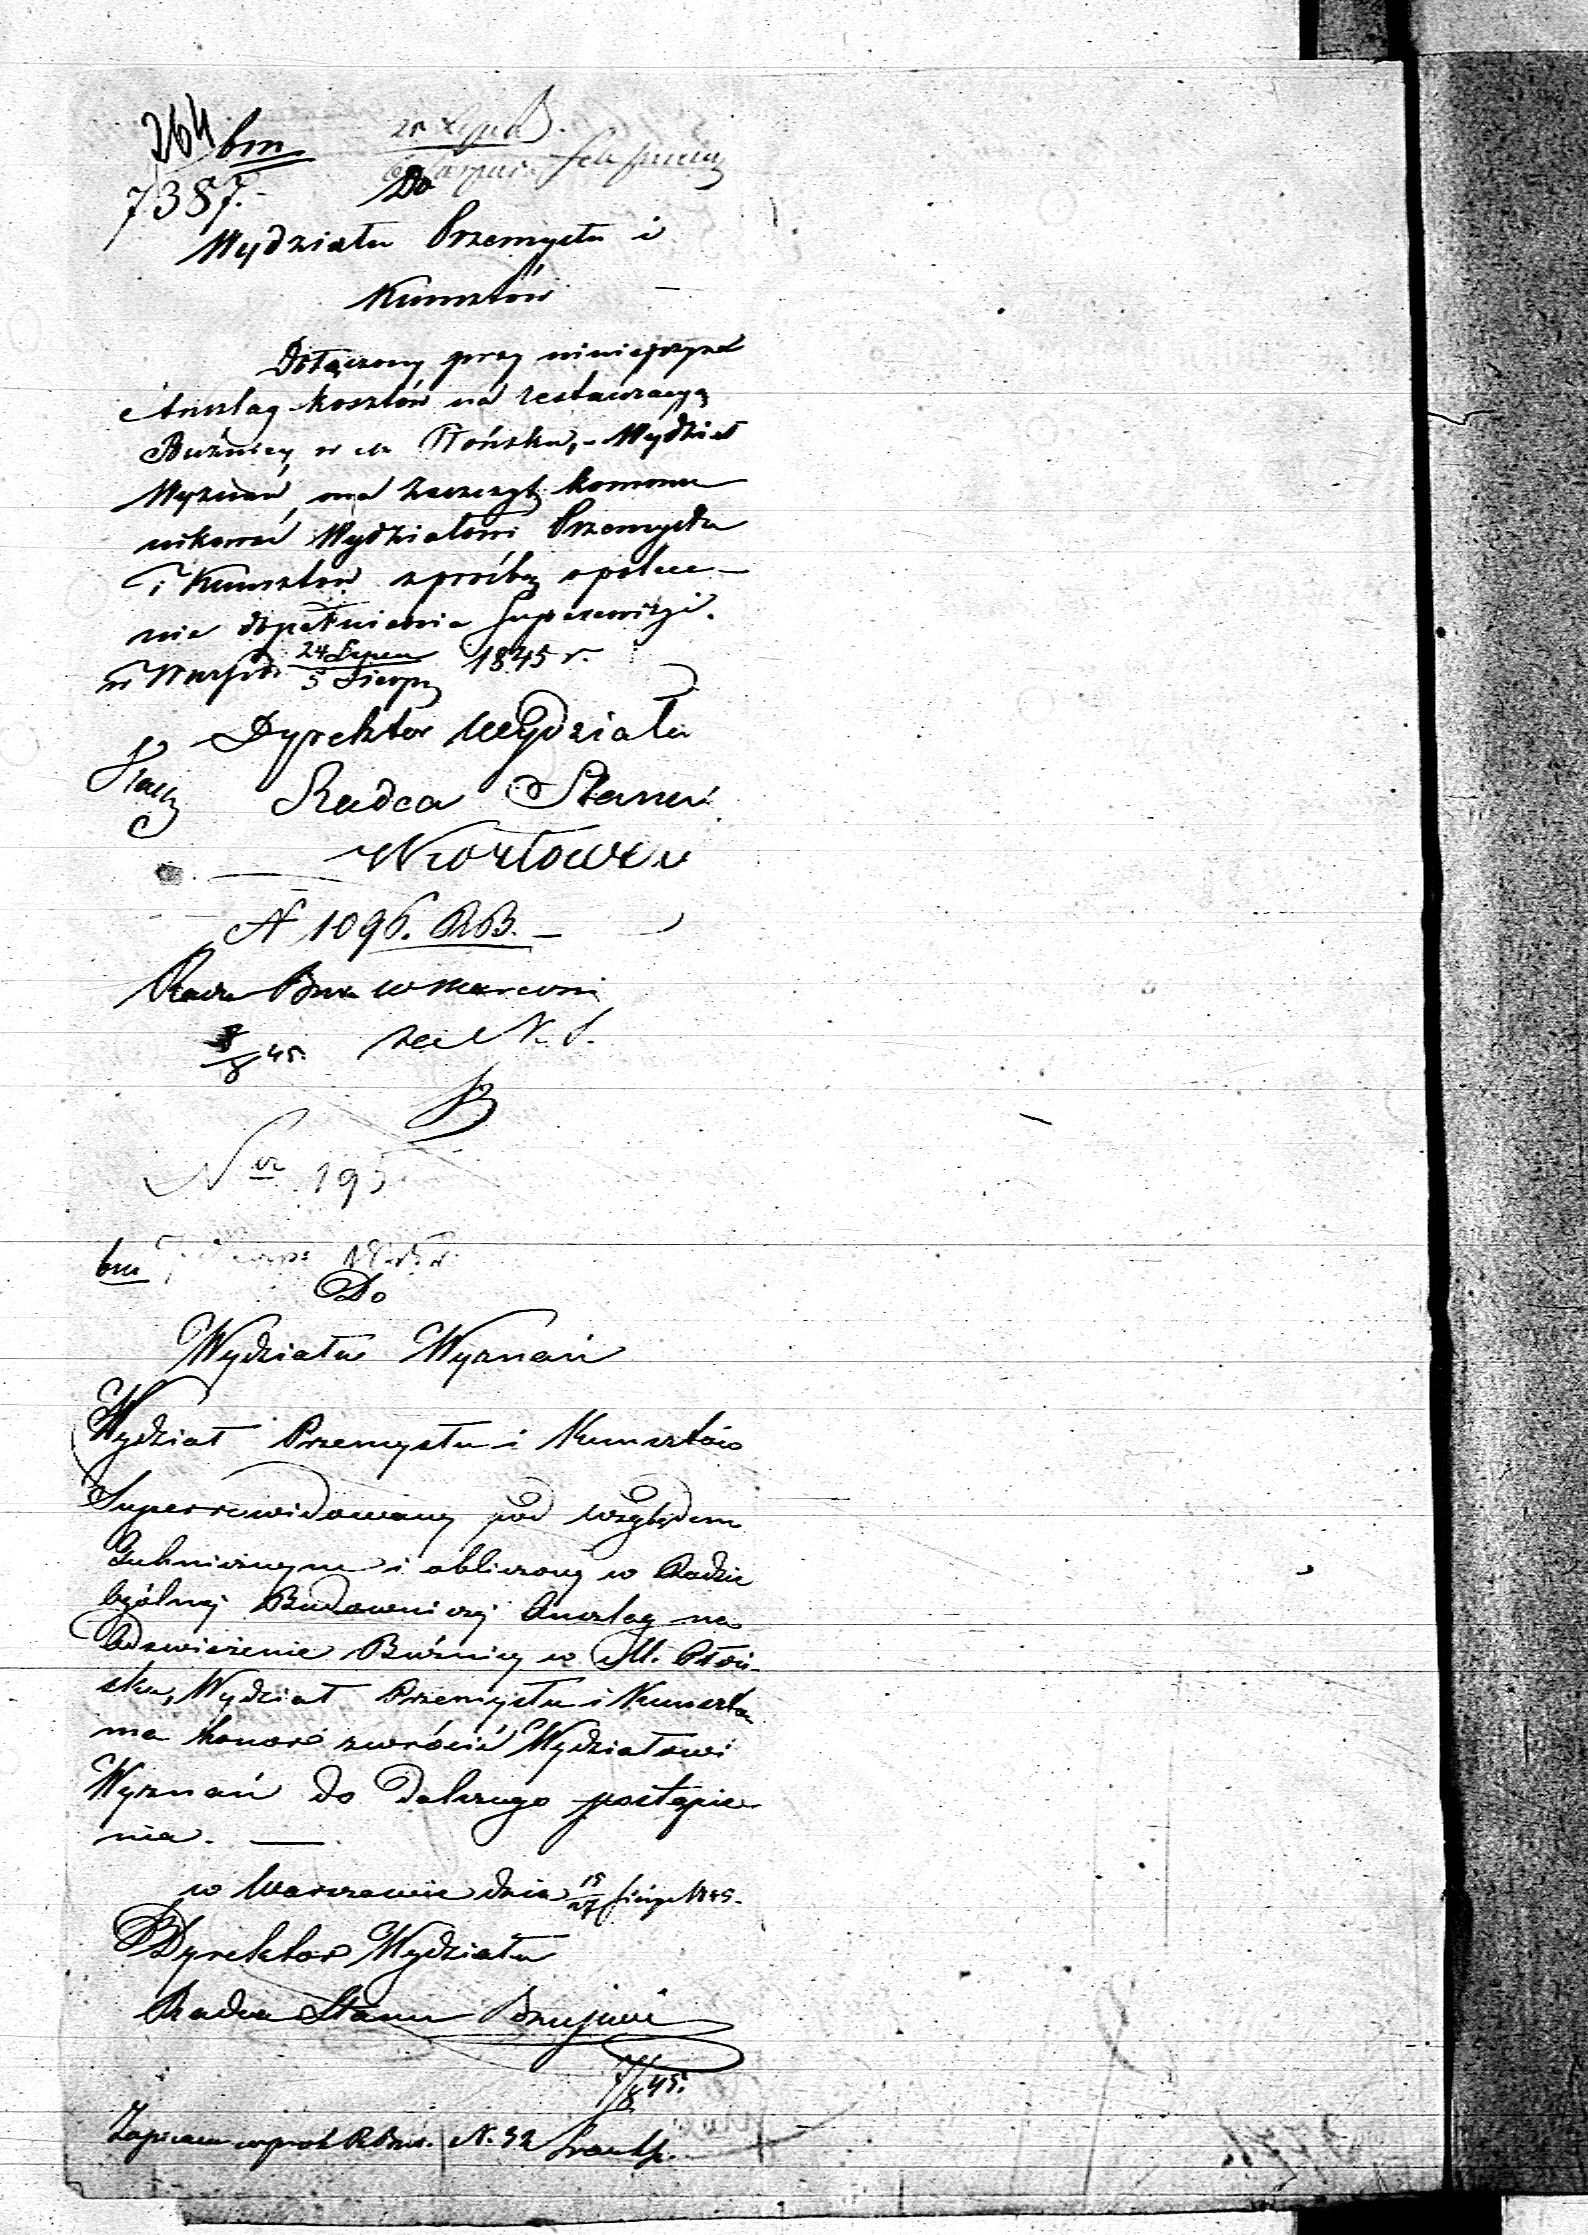 264
bm
7387.
Do
Wydziału Przemysłu i
Kunsztów
Dołączony przy niniejszym
Anszlag kosztów na restauracyą
Bużnicy w m. Płońsku, - Wydział
Wyznań, ma zaszczyt kommu
nikować Wydziałowi Przemysłu
i Kunsztów z prośbą o polece-
nie dopełnienia Superrewizyi.
w Warsz. d. 24 Lipca / 5 Sierp 1845 r.
Dyrektor Wydziału
Radca Stanu
N 1096. RB.
8/8 45.
Nr 195
bm
Do
Wydziału Wyznań
Wydział Przemysłu i Kunsztów
Superrewidowany pod względem
Technicznym i obliczony w Radzie
Ogólnej Budowniczej Anszlag na
Odświeżenie Bużnicy w M. Płoń-
sku, Wydział Przemysłu i Kunsztów
ma honor zwrócić Wydziałowi
Wyznań do dalszego postąpie
nia.
w Warszawie dnia 15/27 Sierp 1845.
Dyrektor Wydziału
Radca Stanu
45.
N. 52